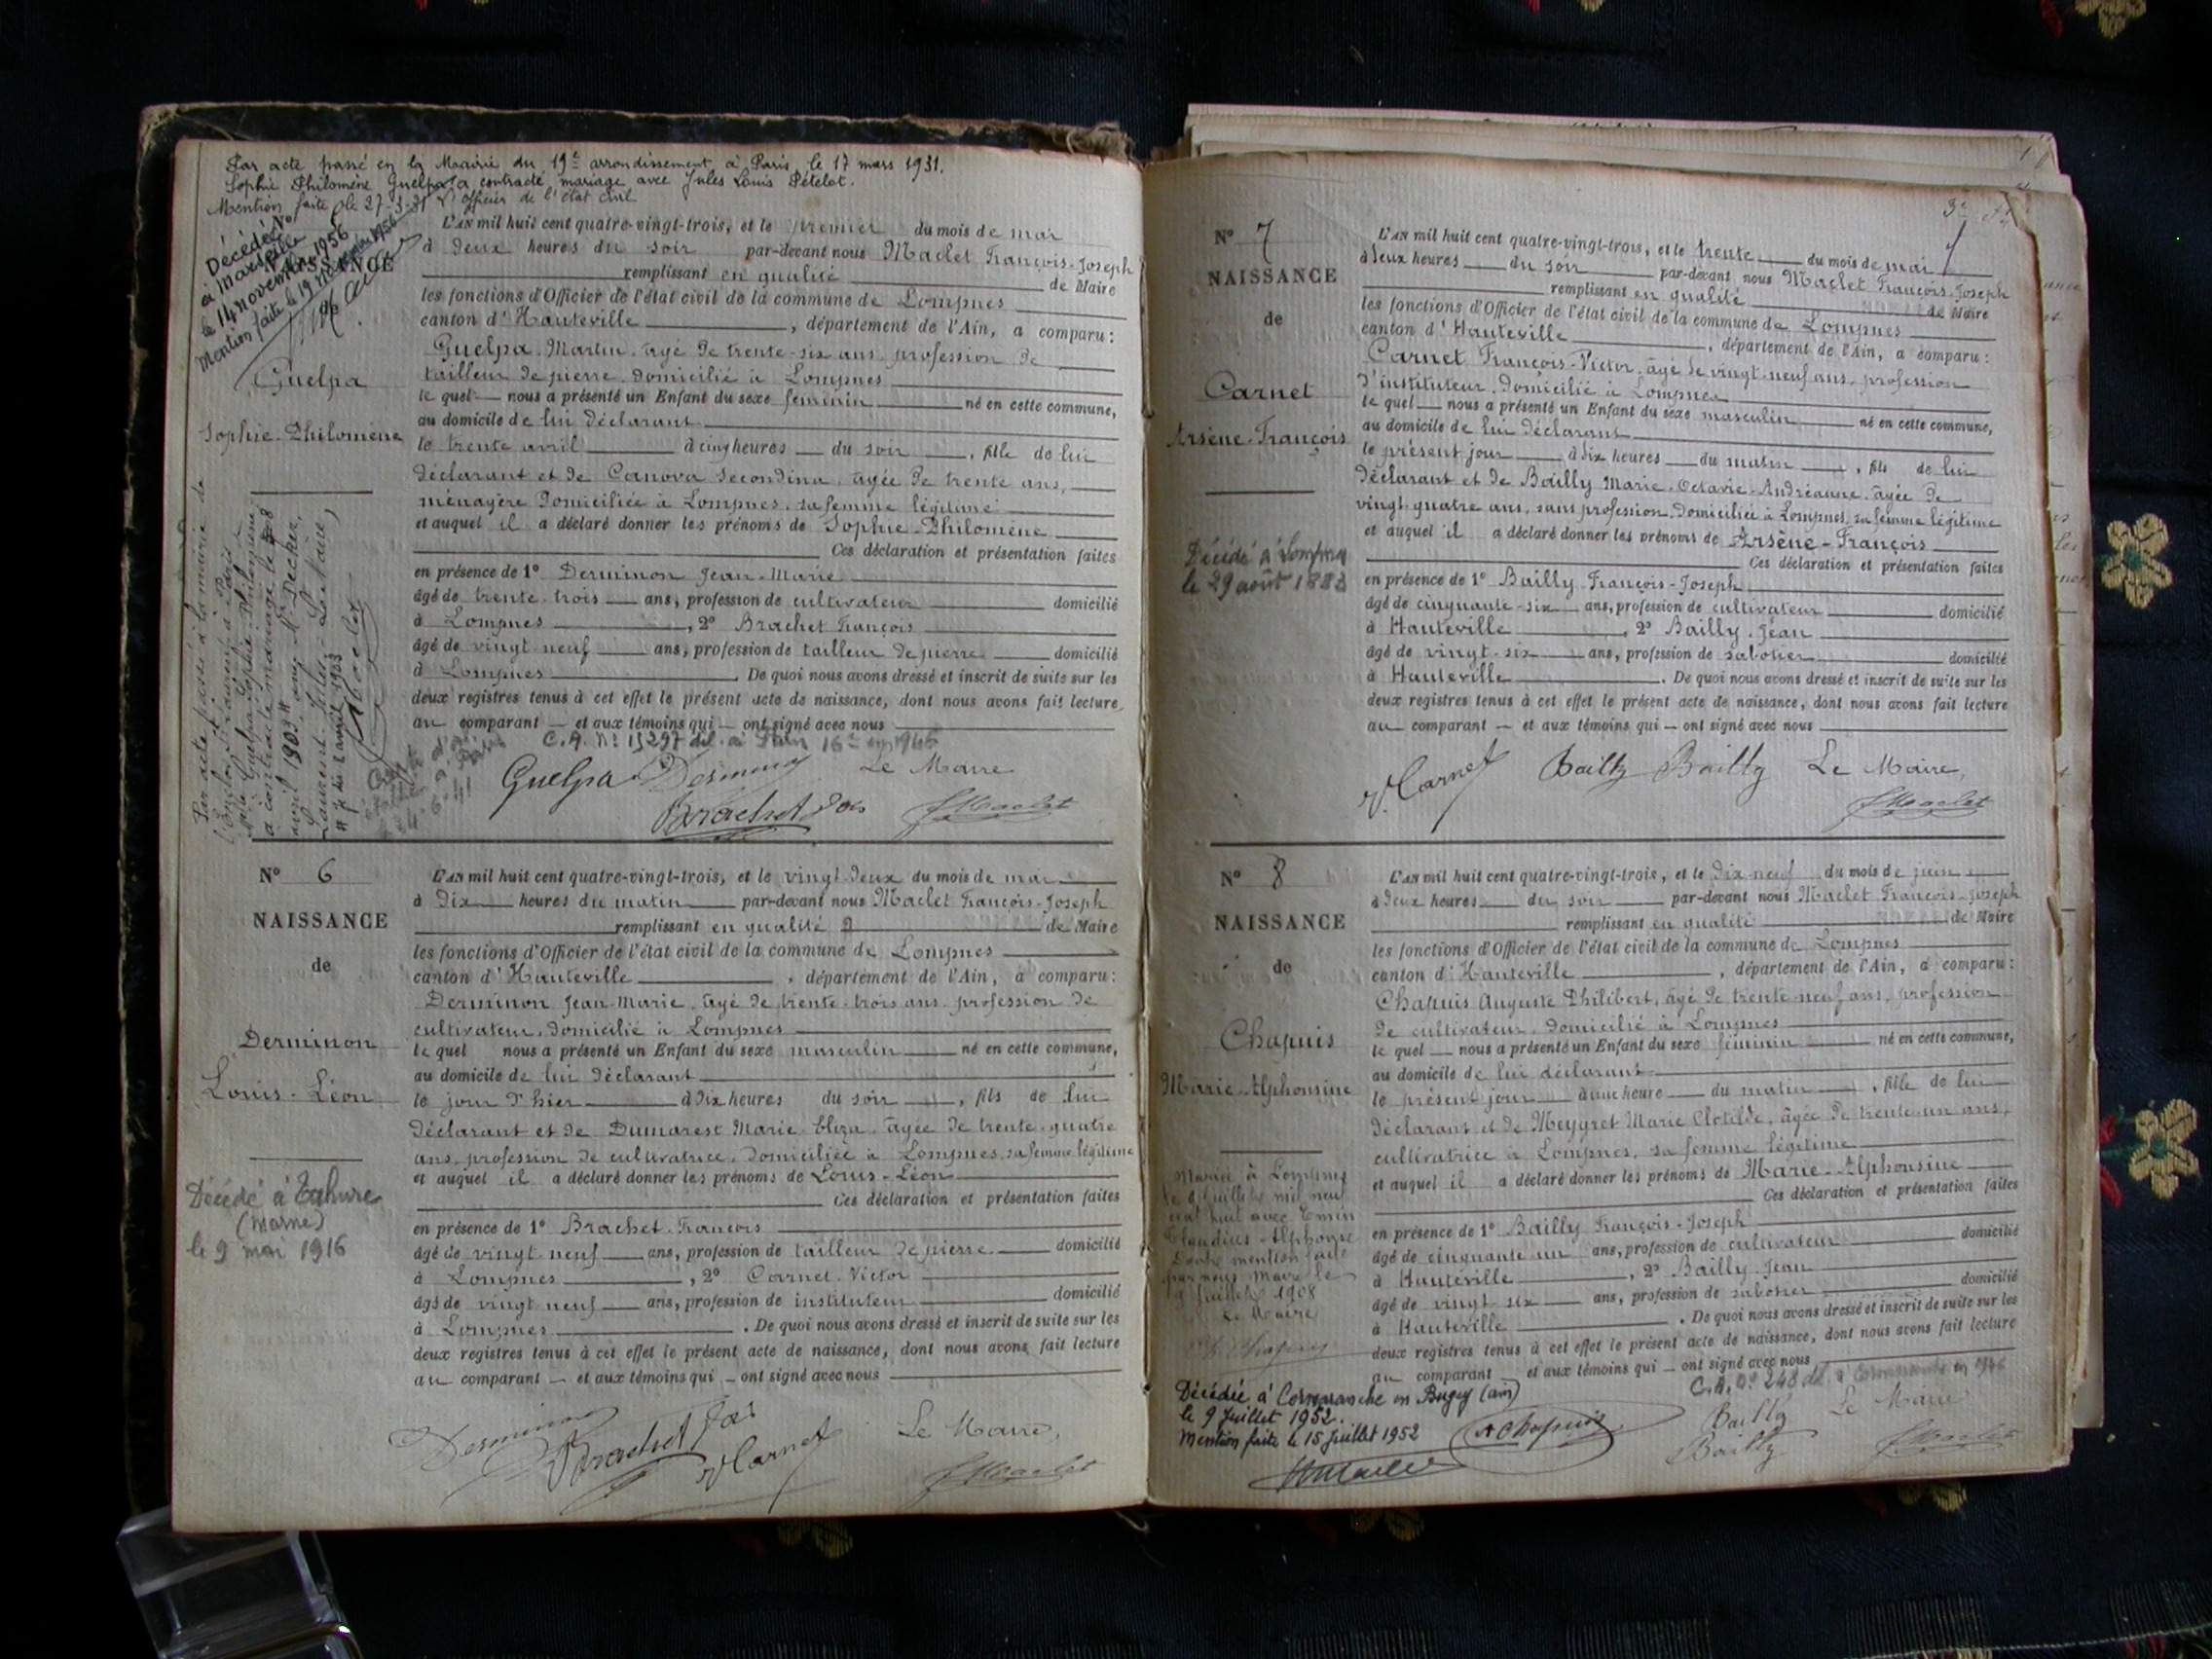 Par acte passé en la Mairie du 19e arrondissement, à Paris, le 17 mars 1931,
Sophie Philomène Guelpa a contracté mariage avec Jules Louis Pételot.
Mention faite le 27-3-31 L'officier de l'état civil
N°
Décédée
à Marseille
le 14 novembre 1956
Mention faite le 19 novembre 1956
NAISSANCE
Guelpa
Sophie-Philomène
Par acte passé à la mairie de
a contracté mariage le
avril 1903
L'an mil huit cent quatre-vingt-trois, et le premier du mois de mai
à deux heures du soir par-devant nous Maclet François-Joseph
remplissant en qualité de Maire
les fonctions d'Officier de l'état civil de la commune de Lompnes
canton d'Hauteville, département de l'Ain, a comparu:
Guelpa Martin, âgé de trente-six ans, profession de
tailleur de pierre, domicilié à Lompnes
le quel nous a présenté un Enfant du sexe féminin né en cette commune,
au domicile de lui déclarant
le trente avril à cinq heures du soir, fille de lui
déclarant et de Canova Secondina, âgée de trente ans,
ménagère domiciliée à Lompnes, sa femme légitime
et auquel il a déclaré donner les prénoms de Sophie-Philomène
Ces déclaration et présentation faites
en présence de 1° Derminon Jean-Marie
âgé de trente-trois ans, profession de cultivateur domicilié
à Lompnes, 2° Brachet François
âgé de vingt-neuf ans, profession de tailleur de pierre domicilié
à Lompnes. De quoi nous avons dressé et inscrit de suite sur les
deux registres tenus à cet effet le présent acte de naissance, dont nous avons fait lecture
au comparant et aux témoins qui ont signé avec nous
C.A. N° 15297 dél. à 16 1946
Guelpa Derminon Le Maire
Brachet Fois FMaclet
N° 6
NAISSANCE
de
Derminon
Louis-Léon
Décédé à Tahure
(Marne)
le 9 mai 1916
L'an mil huit cent quatre-vingt-trois, et le vingt-deux du mois de mai
à dix heures du matin par-devant nous Maclet François-Joseph
remplissant en qualité de Maire
les fonctions d'Officier de l'état civil de la commune de Lompnes
canton d'Hauteville, département de l'Ain, a comparu:
Derminon Jean-Marie, âgé de trente-trois ans, profession de
cultivateur, domicilié à Lompnes
le quel nous a présenté un Enfant du sexe masculin né en cette commune,
au domicile de lui déclarant
le jour d'hier à dix heures du soir, fils de lui
déclarant et de Dumarest Marie-Eliza, âgée de trente-quatre
ans, profession de cultivatrice, domiciliée à Lompnes, sa femme légitime
et auquel il a déclaré donner les prénoms de Louis-Léon
Ces déclaration et présentation faites
en présence de 1° Brachet François
âgé de vingt-neuf ans, profession de tailleur de pierre domicilié
à Lompnes, 2° Carnet Victor
âgé de vingt-neuf ans, profession de instituteur domicilié
à Lompnes. De quoi nous avons dressé et inscrit de suite sur les
deux registres tenus à cet effet le présent acte de naissance, dont nous avons fait lecture
au comparant et aux témoins qui ont signé avec nous
Derminon Brachet Fois VCarnet Le Maire,
FMaclet
3e
N° 7
NAISSANCE
de
Carnet
Arsène-François
Décédé à Lompnes
le 29 août 1883
L'an mil huit cent quatre-vingt-trois, et le trente du mois de mai
à deux heures du soir par-devant nous Maclet François-Joseph
remplissant en qualité de Maire
les fonctions d'Officier de l'état civil de la commune de Lompnes
canton d'Hauteville, département de l'Ain, a comparu:
Carnet François-Victor, âgé de vingt-neuf ans, profession
d'instituteur, domicilié à Lompnes
le quel nous a présenté un Enfant du sexe masculin né en cette commune,
au domicile de lui déclarant
le présent jour à dix heures du matin, fils de lui
déclarant et de Bailly Marie-Octavie-Andréanne, âgée de
vingt-quatre ans, sans profession, domiciliée à Lompnes, sa femme légitime
et auquel il a déclaré donner les prénoms de Arsène-François
Ces déclaration et présentation faites
en présence de 1° Bailly François-Joseph
âgé de cinquante-six ans, profession de cultivateur domicilié
à Hauteville, 2° Bailly Jean
âgé de vingt-six ans, profession de sabotier domicilié
à Hauteville. De quoi nous avons dressé et inscrit de suite sur les
deux registres tenus à cet effet le présent acte de naissance, dont nous avons fait lecture
au comparant et aux témoins qui ont signé avec nous
VCarnet Bailly Bailly Le Maire,
FMaclet
N° 8
NAISSANCE
de
Chapuis
Marie-Alphonsine
Mariée à Lompnes
le 4 juillet mil neuf
cent huit avec Emin
Claudius-Alphonse
Dont mention faite
par nous Maire le
juillet 1908
Le Maire
L'an mil huit cent quatre-vingt-trois, et le dix-neuf du mois de juin
à deux heures du soir par-devant nous Maclet François-Joseph
remplissant en qualité de Maire
les fonctions d'Officier de l'état civil de la commune de Lompnes
canton d'Hauteville, département de l'Ain, a comparu:
Chapuis Auguste Philibert, âgé de trente-neuf ans, profession
de cultivateur, domicilié à Lompnes
le quel nous a présenté un Enfant du sexe féminin né en cette commune,
au domicile de lui déclarant
le présent jour à une heure du matin, fille de lui
déclarant et de Meygret Marie Clotilde, âgée de trente-un ans,
cultivatrice à Lompnes, sa femme légitime
et auquel il a déclaré donner les prénoms de Marie-Alphonsine
Ces déclaration et présentation faites
en présence de 1° Bailly François-Joseph
âgé de cinquante-un ans, profession de cultivateur domicilié
à Hauteville, 2° Bailly Jean
âgé de vingt-six ans, profession de sabotier domicilié
à Hauteville. De quoi nous avons dressé et inscrit de suite sur les
deux registres tenus à cet effet le présent acte de naissance, dont nous avons fait lecture
au comparant et aux témoins qui ont signé avec nous
C.A. n° 248 dél. à Cormaranche en 1946
Décédée à Cormaranche en Bugey (Ain)
le 9 Juillet 1952.
Mention faite le 15 Juillet 1952
AChapuis Bailly Le Maire
Bailly FMaclet